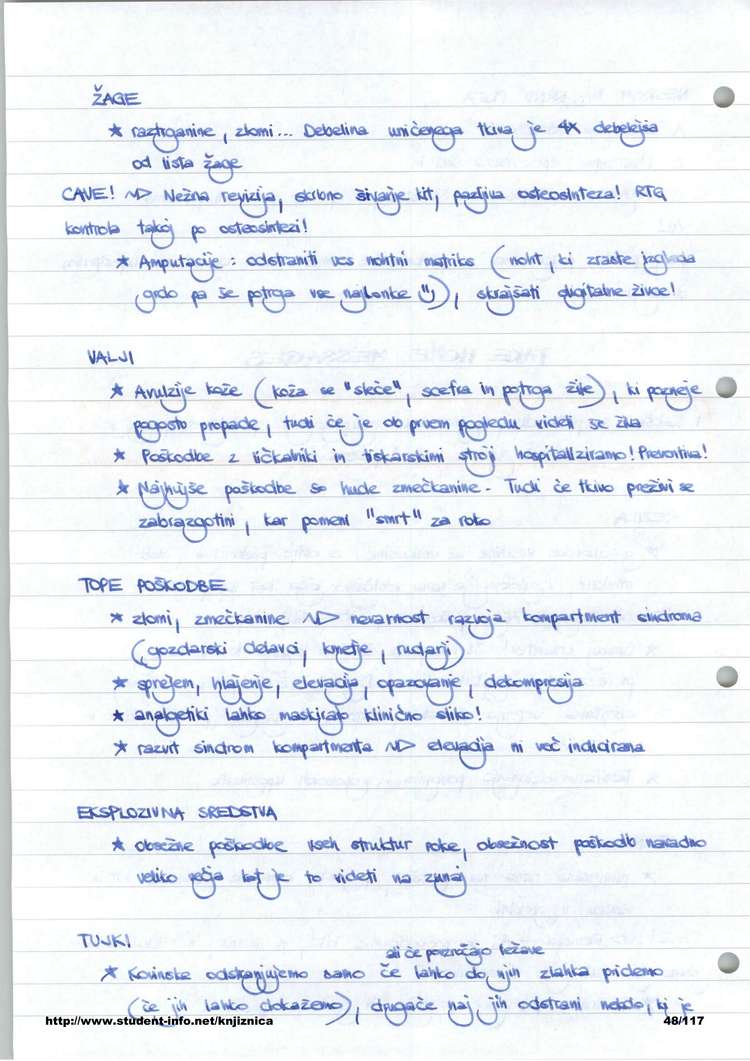 ŽAGE
* raztrganine, zlomi... Debelina uničenega tkiva je 4x debelejša
od lista žage
CAVE! ⇝ Nežna revizija, skrbno šivanje kit, pazljiva osteosinteza! RTG
kontrola takoj po osteosintezi!
* Amputacije: odstraniti ves nohtni matriks (noht, ki zraste izgleda
grdo pa še potrga vse najlonke ";), skrajšati digitalne živce!
VALJI
* Avulzije kože (koža se "sleče", scefra in potrga žile), ki pozneje
pogosto propade, tudi če je ob prvem pogledu videti še živa
* Poškodbe z ličkalniki in tiskarskimi stroji hospitaliziramo! Preventiva!
* Najhujše poškodbe so hude zmečkanine. Tudi če tkivo preživi se
zabrazgotini, kar pomeni "smrt" za roko
TOPE POŠKODBE
* zlomi, zmečkanine ⇝ nevarnost razvoja kompartment sindroma
(gozdarski delavci, kmetje, rudarji)
* sprejem, hlajenje, elevacija, opazovanje, dekompresija
* analgetiki lahko maskirajo klinično sliko!
* razvit sindrom kompartmenta ⇝ elevacija ni več indicirana
EKSPLOZIVNA SREDSTVA
* obsežne poškodbe vseh struktur roke, obsežnost poškodb navadno
veliko večja kot je to videti na zunaj
TUJKI
ali če povzročajo težave
* Kovinske odstranjujemo samo če lahko do njih zlahka pridemo
(če jih lahko dokažemo), drugače naj jih odstrani nekdo, ki je
http://www.student-info.net/knjiznica 48/117